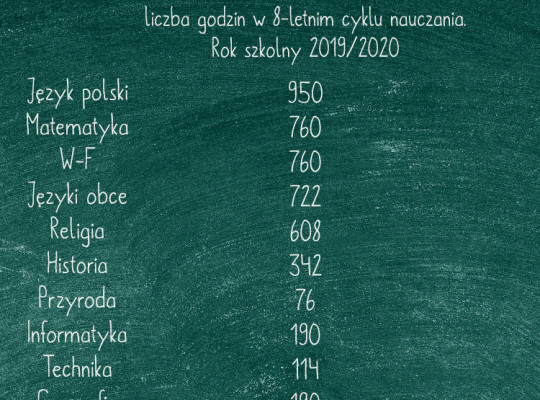 liczba godzin w 8-letnim cyklu nauczania.
Rok szkolny 2019/2020
Język polski 950
Matematyka 760
W-F 760
Języki obce 722
Religia 608
Historia 342
Przyroda 76
Informatyka 190
Technika 114